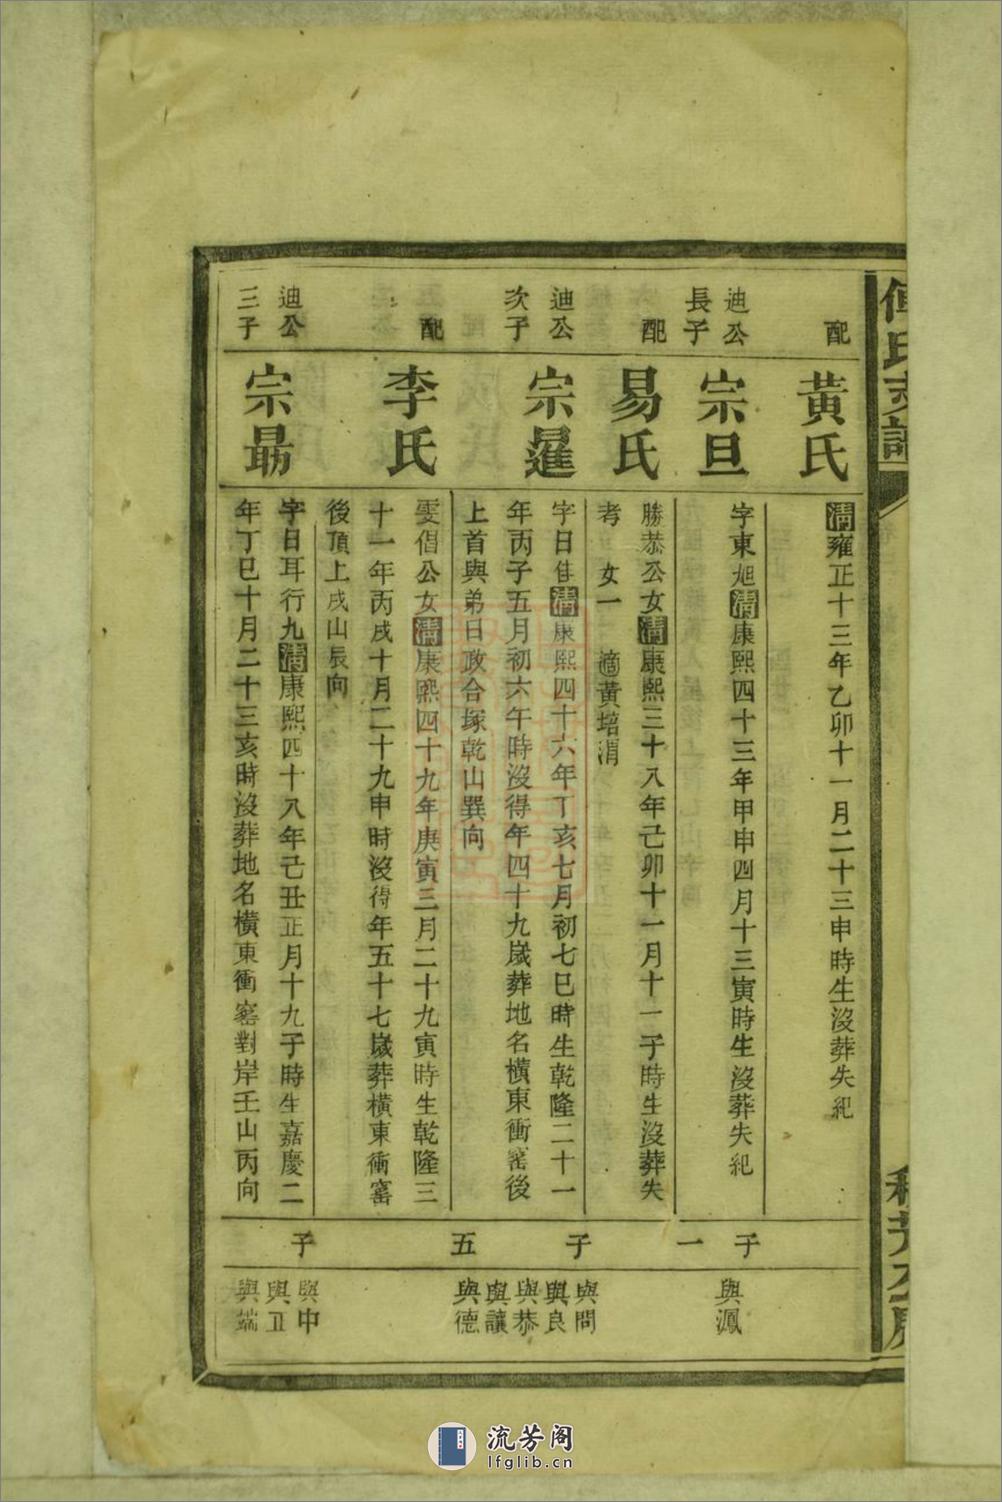 配
黃氏
清雍正十三年乙卯十一月二十三申時生沒葬失紀
迪公
長子
宗旦
字東旭清康熙四十三年甲申四月十三寅時生沒葬失紀
子一
與鳳
配
易氏
勝恭公女清康熙三十八年己卯十一月十一子時生沒葬失
考 女一 適黃培渭
迪公
次子
宗暹
字日隹清康熙四十六年丁亥七月初七巳時生乾隆二十一
年丙子五月初六午時沒得年四十九歲葬地名橫東衝窰後
上首與弟日政合塚乾山巽向
子五
與問
與良
與恭
與讓
與德
配
李氏
雯倡公女清康熙四十九年庚寅三月二十九寅時生乾隆三
十一年丙戌十月二十九申時沒得年五十七歲葬橫東衝窰
後頂上戌山辰向
迪公
三子
宗勗
字日耳行九清康熙四十八年己丑正月十九子時生嘉慶二
年丁巳十月二十三亥時沒葬地名橫東衝窰對岸壬山丙向
子
與中
與卫
與端
流芳阁
lfglib.cn